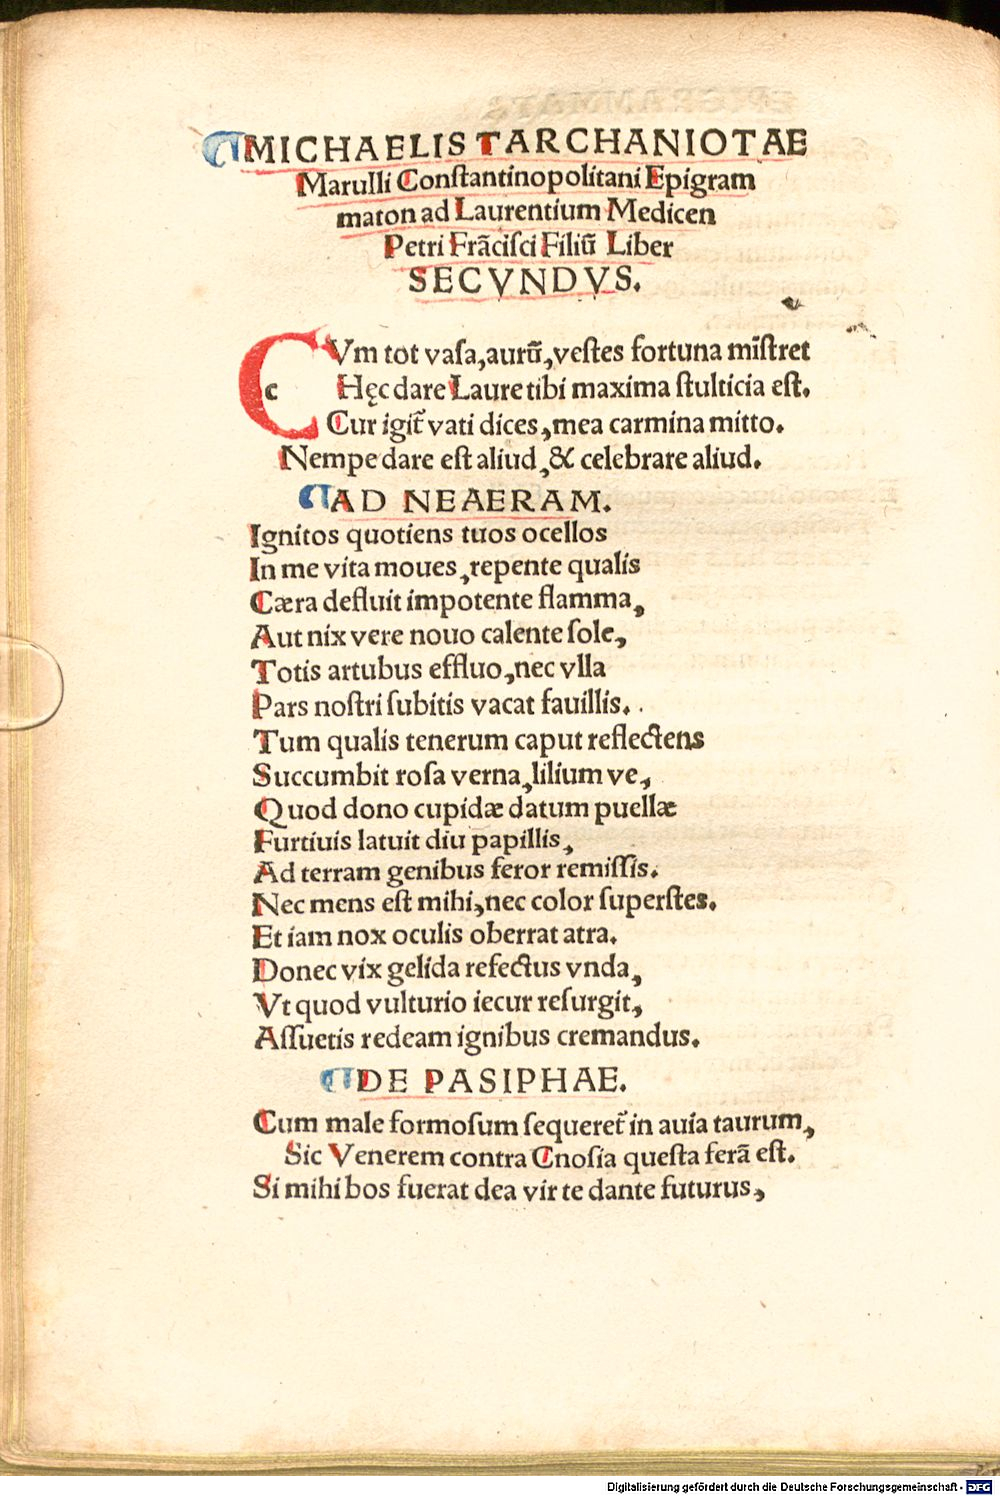 MICHAELIS TARCHANIOTAE
Marulli Conſtantinopolitani Epigram
maton ad Laurentium Medicen
Petri Frãciſci Filiũ Liber
SECVNDVS.
CVm tot vaſa,aurũ,veſtes fortuna mĩſtret
c
Hęc dare Laure tibi maxima ſtulticia eſt.
Cur igit᷑ vati dices,mea carmina mitto.
Nempe dare eſt aliud,& celebrare aliud.
AD NEAERAM.
Ignitos quotiens tuos ocellos
In me vita moues,repente qualis
Cæra defluit impotente flamma,
Aut nix vere nouo calente ſole,
Totis artubus effluo,nec vlla
Pars noſtri ſubitis vacat fauillis.
Tum qualis tenerum caput reflectens
Succumbit roſa verna,lilium ve,
Quod dono cupidæ datum puellæ
Furtiuis latuit diu papillis,
Ad terram genibus feror remiſſis.
Nec mens eſt mihi,nec color ſuperſtes.
Et iam nox oculis oberrat atra.
Donec vix gelida refectus vnda,
Vt quod vulturio iecur reſurgit,
Aſſuetis redeam ignibus cremandus.
DE PASIPHAE.
Cum male formoſum ſequeret᷑ in auia taurum,
Sic Venerem contra Cnoſia queſta ferã eſt.
Si mihi bos fuerat dea vir te dante futurus,
Digitalisierung gefördert durch die Deutsche Forschungsgemeinschaft - DFG